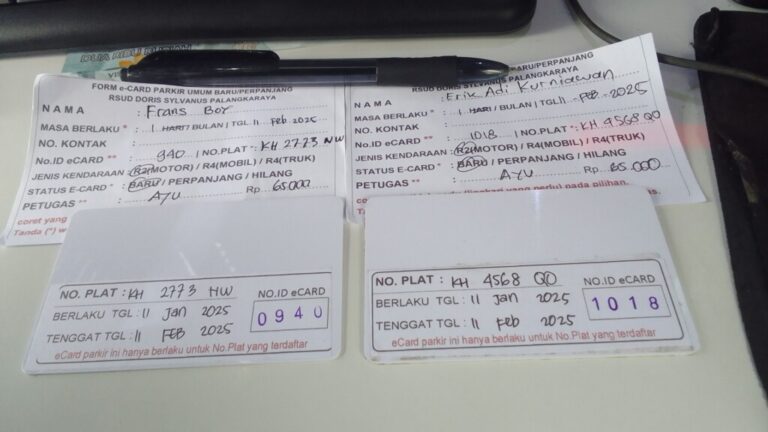 DUA RIBU RUPIAH
FORM e-CARD PARKIR UMUM BARU/PERPANJANG
RSUD DORIS SYLVANUS PALANGKARAYA
NAMA : Frans Box
MASA BERLAKU * : 1 HARI / BULAN | TGL 11 Feb 2025
NO. KONTAK :
No.ID eCARD ** : 940 | NO.PLAT * : KH 2773 NW
JENIS KENDARAAN : R2(MOTOR) / R4(MOBIL) / R4(TRUK)
STATUS E-CARD * : BARU / PERPANJANG / HILANG
PETUGAS ** : AYU Rp. 65.000
coret yang
Tanda (*) w
BARU/PERPANJANG
RSUD DORIS SYLVANUS PALANGKARAYA
NAMA : Erik Adi Kurniawan
MASA BERLAKU * : 1 HARI / BULAN | TGL 11 - Feb - 2025
NO. KONTAK :
No.ID eCARD ** : 1018 | NO.PLAT * : KH 4568 QO
JENIS KENDARAAN : R2(MOTOR) / R4(MOBIL) / R4(TRUK)
STATUS E-CARD * : BARU / PERPANJANG / HILANG
PETUGAS ** : AYU Rp. 65.000
yang perlu) pada pilihan.
NO. PLAT : KH 2773 NW
BERLAKU TGL : 11 Jan 2025
TENGGAT TGL : 11 FEB 2025
NO.ID eCARD
0940
eCard parkir ini hanya berlaku untuk No.Plat yang terdaftar
NO. PLAT : KH 4568 QO
BERLAKU TGL : 11 Jan 2025
TENGGAT TGL : 11 Feb 2025
NO.ID eCARD
1018
eCard parkir ini hanya berlaku untuk No.Plat yang terdaftar